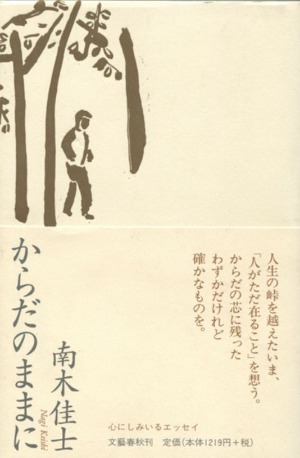 からだのままに
南木佳士
Nagi Keishi
人生の峠を越えたいま、
「人がただ在ること」を想う。
からだの芯に残った
わずかだけれど
確かなものを。
心にしみいるエッセイ
文藝春秋刊 定価(本体1219円+税)